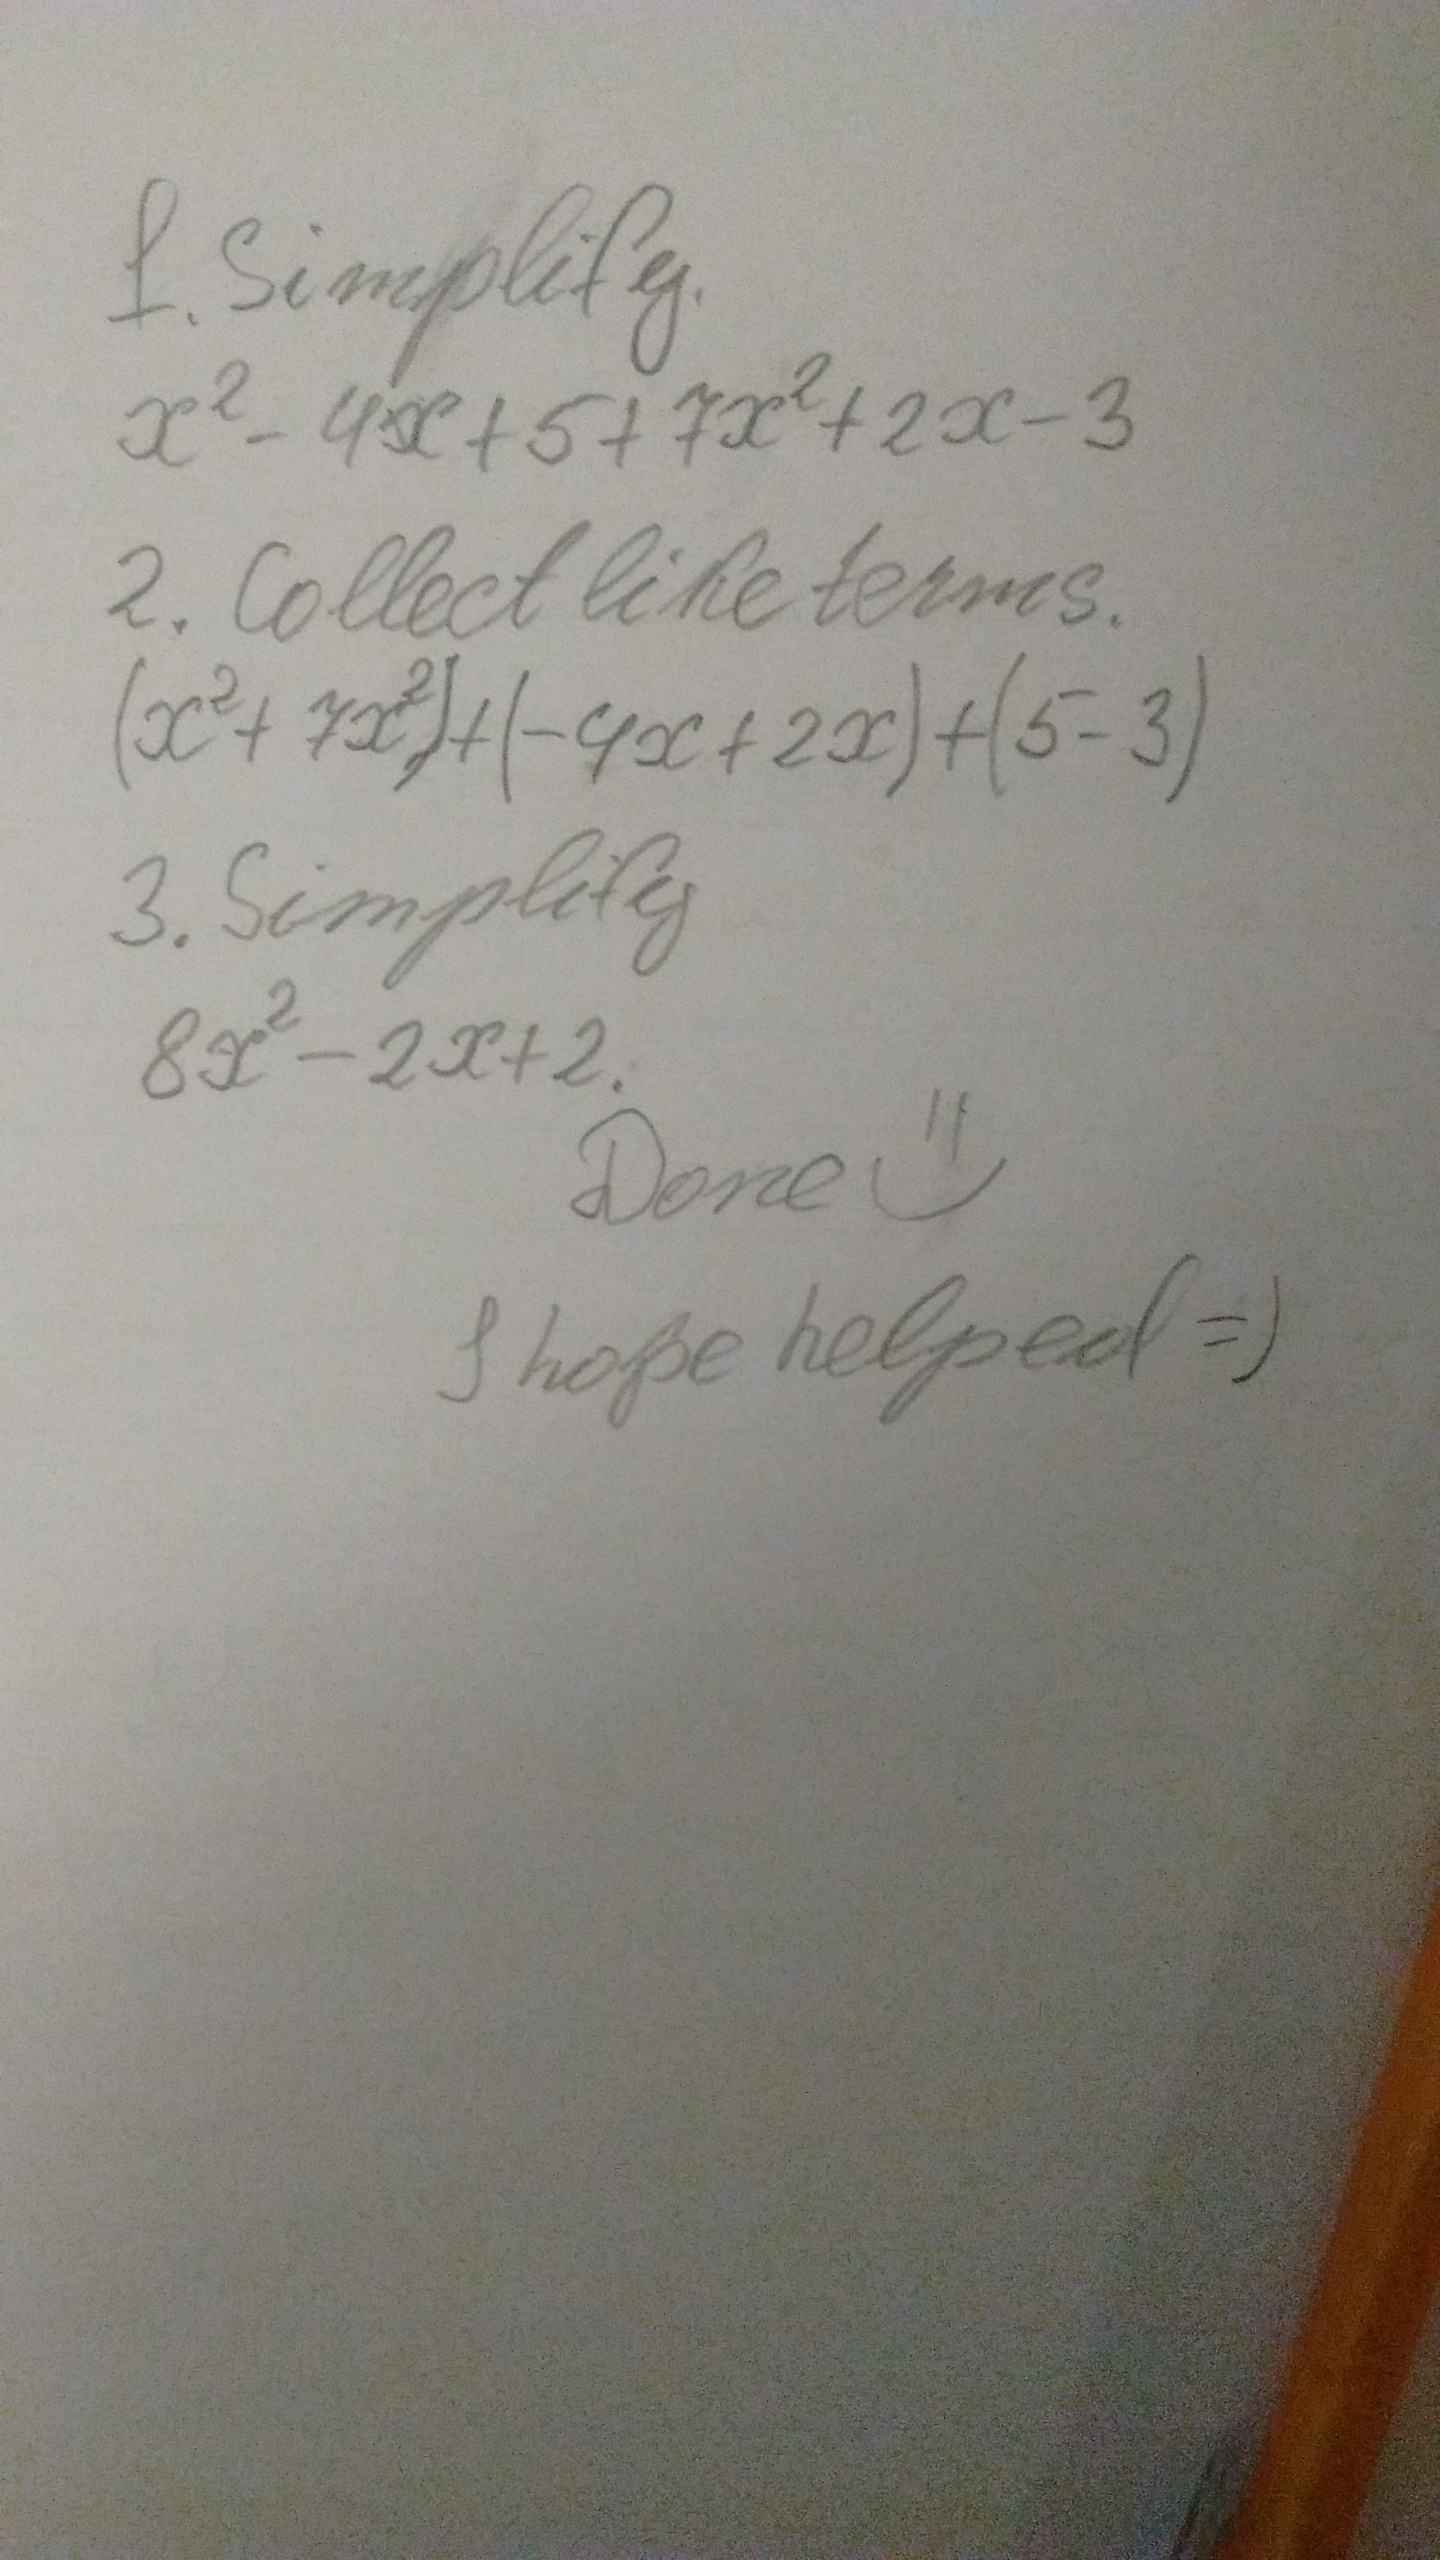 1. Simplify.
x² - 4x + 5 + 7x² + 2x - 3
2. Collect like terms.
(x² + 7x²) + (-4x + 2x) + (5 - 3)
3. Simplify
8x² - 2x + 2.
Done
I hope helped =)